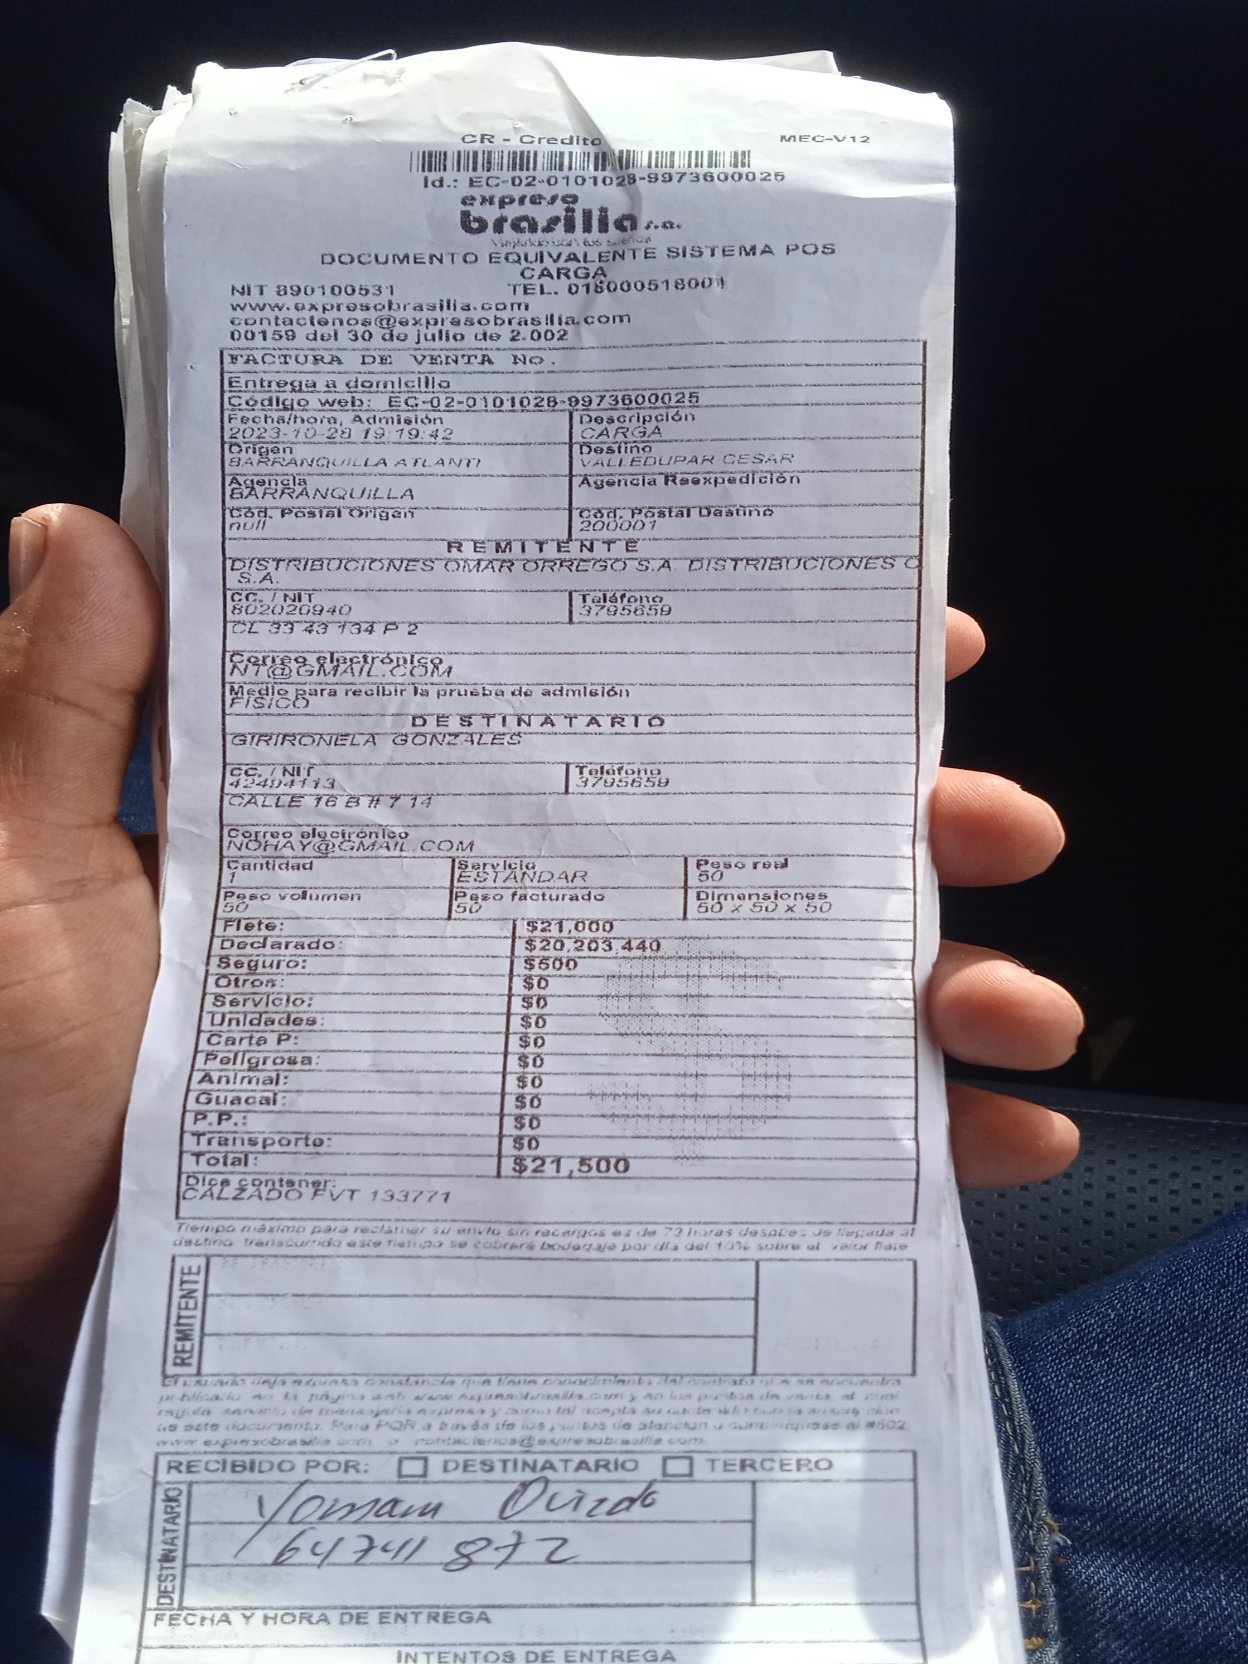 CR - Credito MEC-V12
Id.: EC-02-0101028-9973600025
expreso
brasilia s.a.
DOCUMENTO EQUIVALENTE SISTEMA POS
CARGA
NIT 890100531 TEL. 018000518001
www.expresobrasilia.com
contactenos@expresobrasilia.com
00159 del 30 de julio de 2.002
FACTURA DE VENTA No.
Entrega a domicilio
Código web: EC-02-0101028-9973600025
Fecha/hora, Admisión Descripción
2023-10-28 19:19:42 CARGA
Origen Destino
BARRANQUILLA ATLANTI VALLEDUPAR CESAR
Agencia Agencia Reexpedición
BARRANQUILLA
Cód. Postal Origen Cód. Postal Destino
null 200001
REMITENTE
DISTRIBUCIONES OMAR ORREGO S.A. DISTRIBUCIONES O
S.A.
CC. / NIT Teléfono
802020940 3795659
CL 33 43 134 P 2
Correo electrónico
NT@GMAIL.COM
Medio para recibir la prueba de admisión
FISICO
DESTINATARIO
GIRIRONELA GONZALES
CC. / NIT Teléfono
42494113 3795659
CALLE 16 B # 7 14
Correo electrónico
NOHAY@GMAIL.COM
Cantidad Servicio Peso real
1 ESTANDAR 50
Peso volumen Peso facturado Dimensiones
50 50 50 x 50 x 50
Flete: $21,000
Declarado: $20,203,440
Seguro: $500
Otros: $0
Servicio: $0
Unidades: $0
Carta P: $0
Peligrosa: $0
Animal: $0
Guacal: $0
P.P.: $0
Transporte: $0
Total: $21,500
Dice contener:
CALZADO FVT 133771
Tiempo máximo para reclamar su envío sin recargos es de 72 horas después de llegada al
destino, transcurrido este tiempo se cobrará bodegaje por día del 10% sobre el valor flete
REMITENTE
El usuario deja expresa constancia que tiene conocimiento del contrato que se encuentra
publicado en la página web www.expresobrasilia.com y en los puntos de venta, el cual
regula servicio de mensajería expresa y como tal acepta su contenido con la suscripción
de este documento. Para PQR a través de los puntos de atención o comuníquese al #502,
www.expresobrasilia.com o contactenos@expresobrasilia.com
RECIBIDO POR: DESTINATARIO TERCERO
DESTINATARIO
Yomam Oviedo
64741872
FECHA Y HORA DE ENTREGA
INTENTOS DE ENTREGA